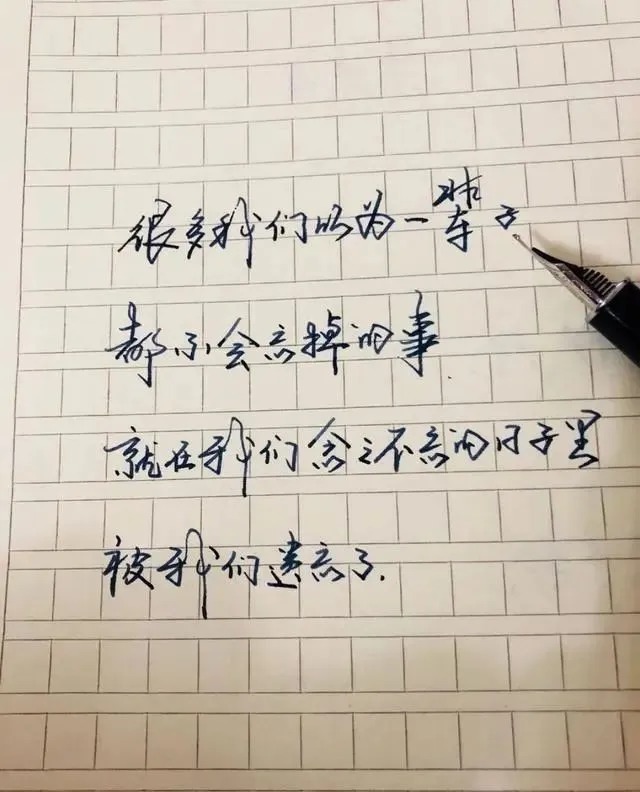 很多我们以为一辈子
都不会忘掉的事
就在我们念念不忘的日子里
被我们遗忘了.